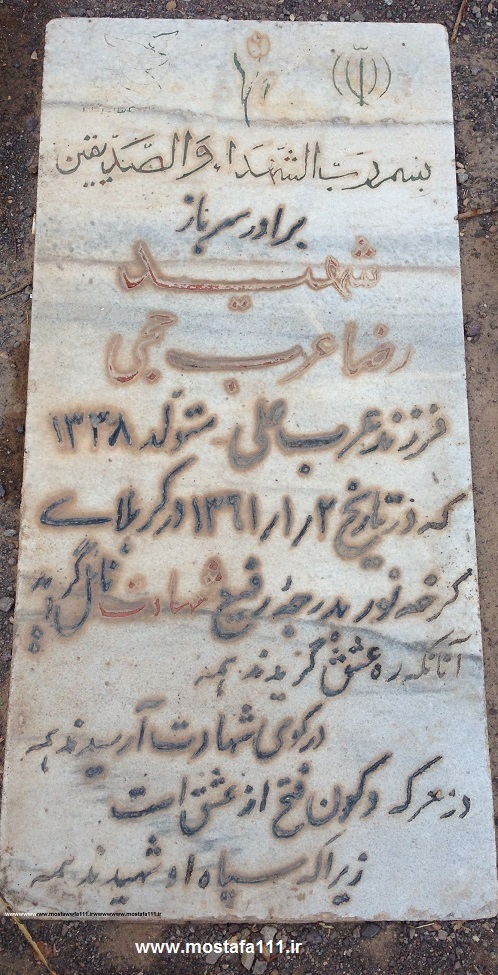 بسم رب الشهداء والصدیقین
برادر سرباز
شهید
رضا عرب حجی
فرزند عرب علی متولد ۱۳۳۸
که در تاریخ ۲/۱/۱۳۶۱ در کربلای
کرخه نور بدرجهٔ رفیع شهادت نائل گردید
آنانکه ره عشق گزیدند همه
در کوی شهادت آرمیدند همه
در معرکه دو کون فتح از عشق است
زیرا که سپاه او شهیدند همه
www.mostafa111.ir